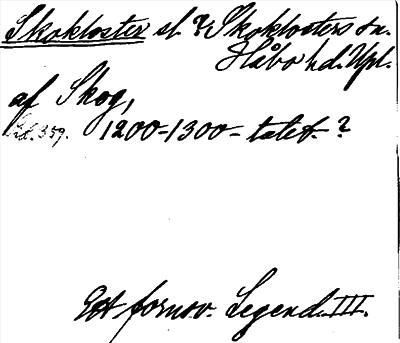 Skokloster sl. ? Skoklosters sn.
Håbo hd. Upl.
af Skog,
s. 359. 1200-1300-talet. ?
Ett fornsv. Legend. III.